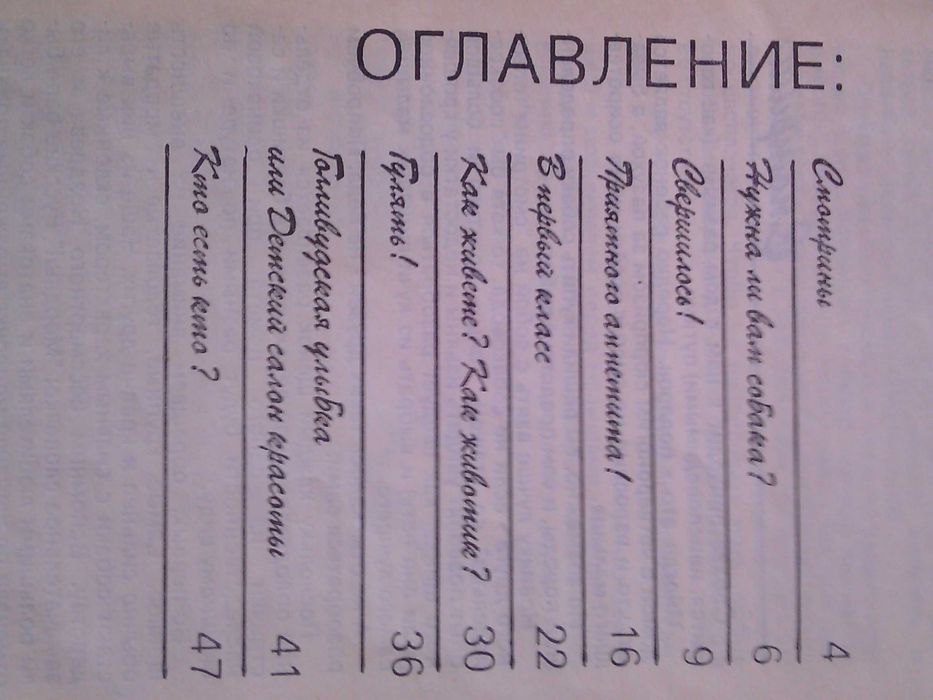 ОГЛАВЛЕНИЕ:
Смотрины 4
Нужна ли вам собака? 6
Свершилось! 9
Приятного аппетита! 16
В первый класс 22
Как живете? Как животик? 30
Гулять! 36
Голливудская улыбка
или Детский салон красоты 41
Кто есть кто? 47